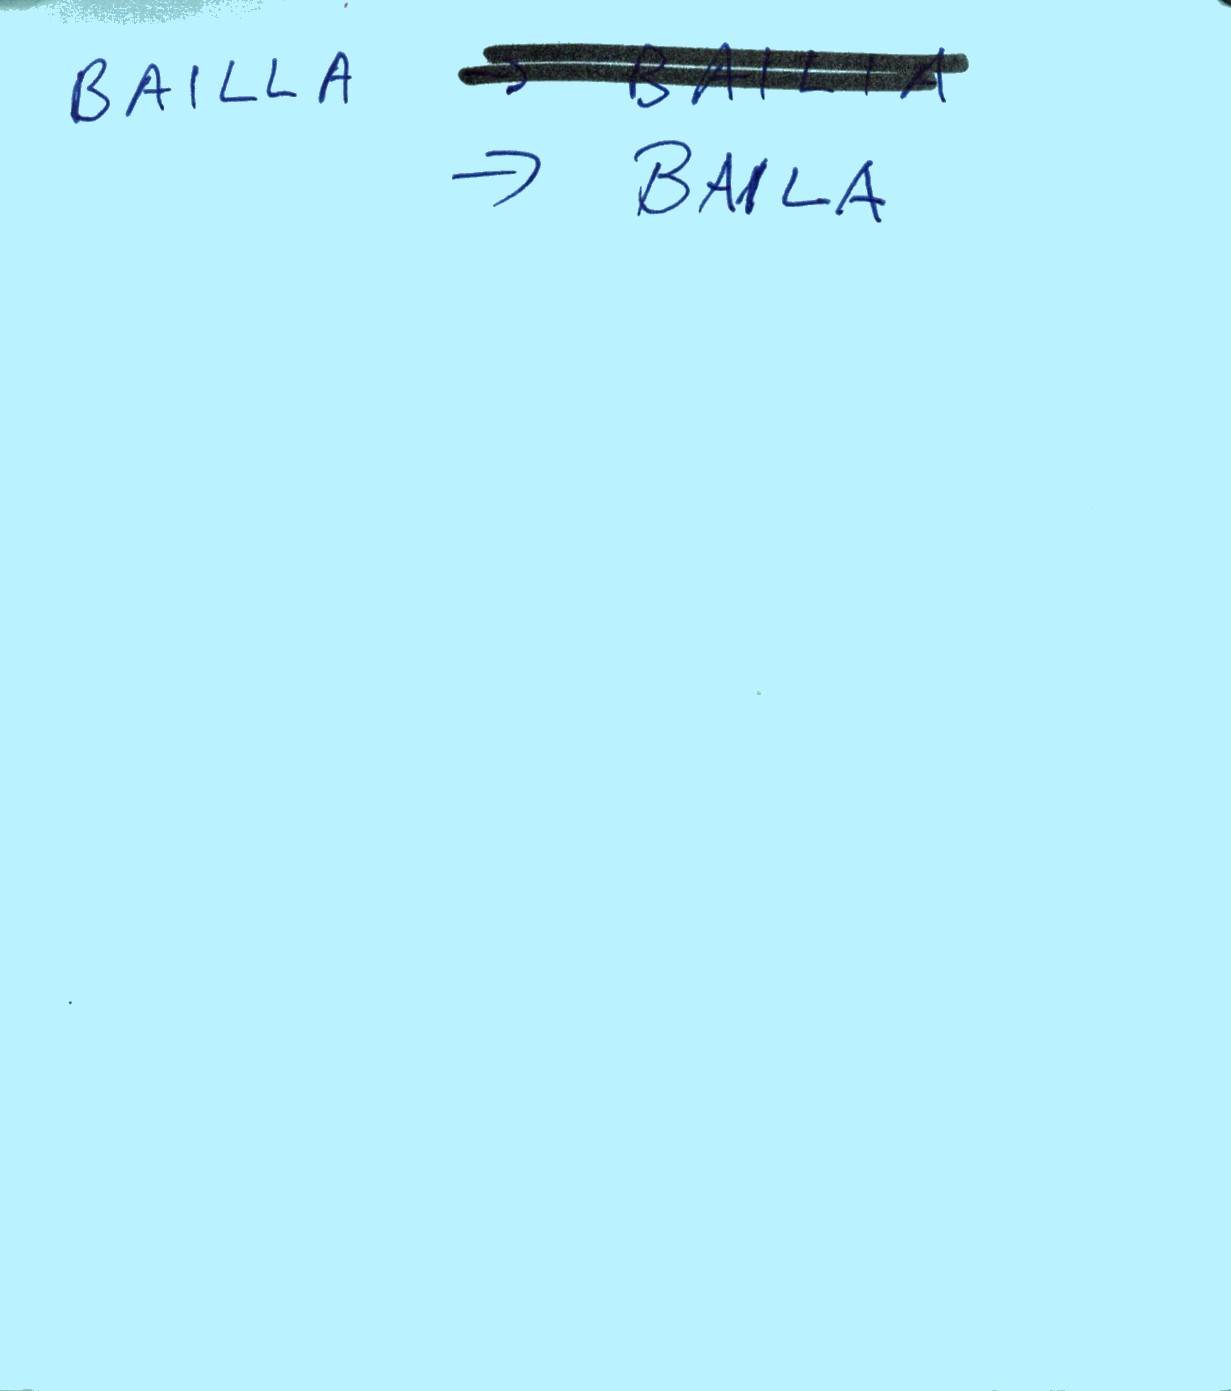 BAILLA → BAILIA
→ BAILA